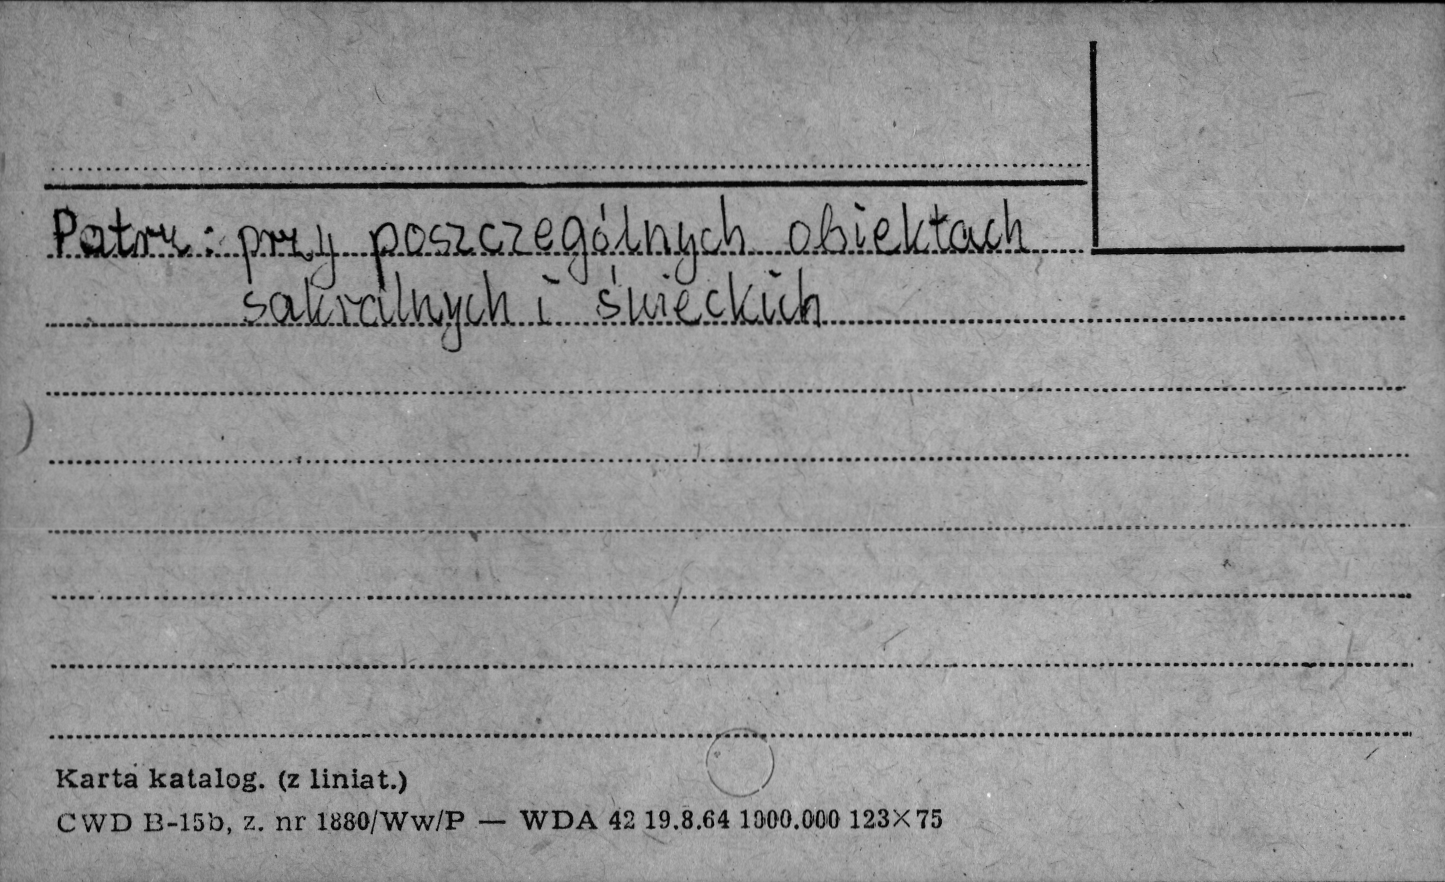 Patrz: przy poszczególnych obiektach
sakralnych i świeckich
Karta katalog. (z liniat.)
CWD B-15b, z. nr 1880/Ww/P — WDA 42 19.8.64 1000.000 123×75